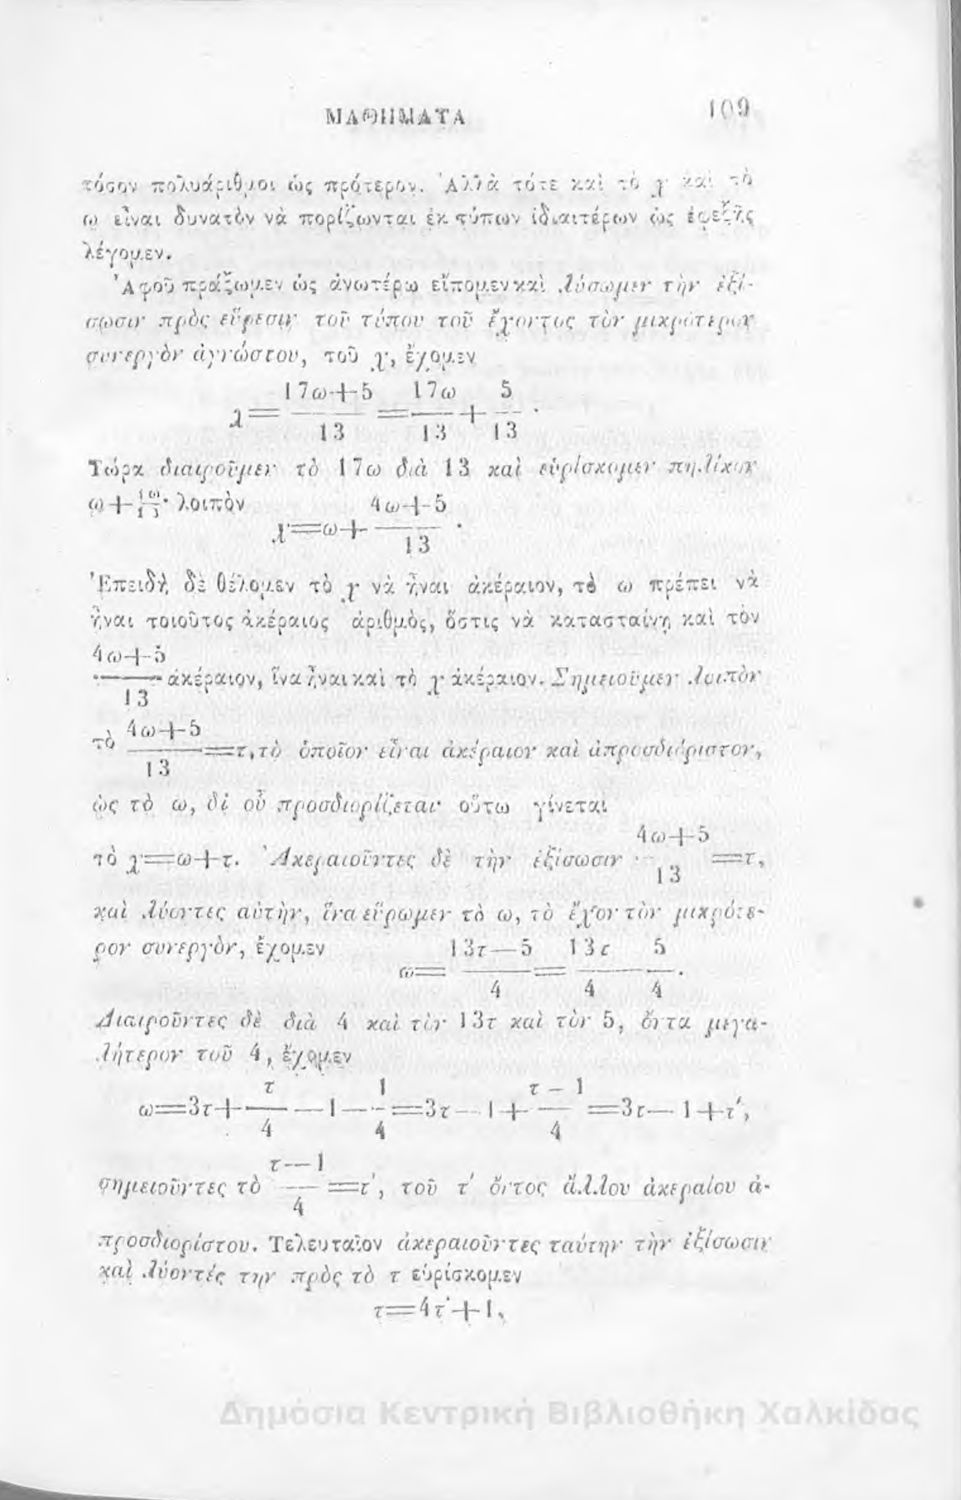 ΜΑΘΗΜΑΤΑ 109
τόσον πολυάριθμοι ὡς πρότερον. Ἀλλὰ τότε καὶ τὸ χ καὶ τὸ
ω εἶναι δυνατὸν νὰ πορίζωνται ἐκ τύπων ἰδιαιτέρων ὡς ἐφεξῆς
λέγομεν.
Ἀφοῦ πράξωμεν ὡς ἀνωτέρω εἴπομεν καὶ λύσωμεν τὴν ἐξί-
σωσιν πρὸς εὕρεσιν τοῦ τύπου τοῦ ἔχοντος τὸν μικρότερον
συνεργὸν ἀγνώστου, τοῦ χ, ἔχομεν
17ω+5 17ω 5
χ= ——— =——+—— .
13 13 13
Τώρα διαιροῦμεν τὸ 17ω διὰ 13 καὶ εὑρίσκομεν πηλίκον
ω+4ω/13· λοιπὸν 4ω+5
χ=ω+ ——— .
13
Ἐπειδὴ δὲ θέλομεν τὸ χ νὰ ἦναι ἀκέραιον, τὸ ω πρέπει νὰ
ἦναι τοιοῦτος ἀκέραιος ἀριθμὸς, ὅστις νὰ κατασταίνῃ καὶ τὸν
4ω+5
——— ἀκέραιον, ἵνα ἦναι καὶ τὸ χ ἀκέραιον. Σημειοῦμεν λοιπὸν
13
τὸ 4ω+5
———=τ, τὸ ὁποῖον εἶναι ἀκέραιον καὶ ἀπροσδιόριστον,
13
ὡς τὸ ω, δι' οὗ προσδιορίζεται· οὕτω γίνεται
4ω+5
τὸ χ=ω+τ. Ἀκεραιοῦντες δὲ τὴν ἐξίσωσιν ——— =τ,
13
καὶ λύοντες αὐτὴν, ἵνα εὕρωμεν τὸ ω, τὸ ἔχον τὸν μικρότε-
ρον συνεργὸν, ἔχομεν 13τ—5 13τ 5
ω= ——— = ——— ——.
4 4 4
Διαιροῦντες δὲ διὰ 4 καὶ τὸν 13τ καὶ τὸν 5, ὄντα μεγα-
λήτερον τοῦ 4, ἔχομεν
τ 1 τ—1
ω=3τ+——— —1— —=3τ—1+ —— =3τ—1+τ',
4 4 4
τ—1
σημειοῦντες τὸ —— =τ', τοῦ τ' ὄντος ἄλλου ἀκεραίου ἀ-
4
προσδιορίστου. Τελευταῖον ἀκεραιοῦντες ταύτην τὴν ἐξίσωσιν
καὶ λύοντές την πρὸς τὸ τ εὑρίσκομεν
τ=4τ'+1,
Δημόσια Κεντρική Βιβλιοθήκη Χαλκίδας